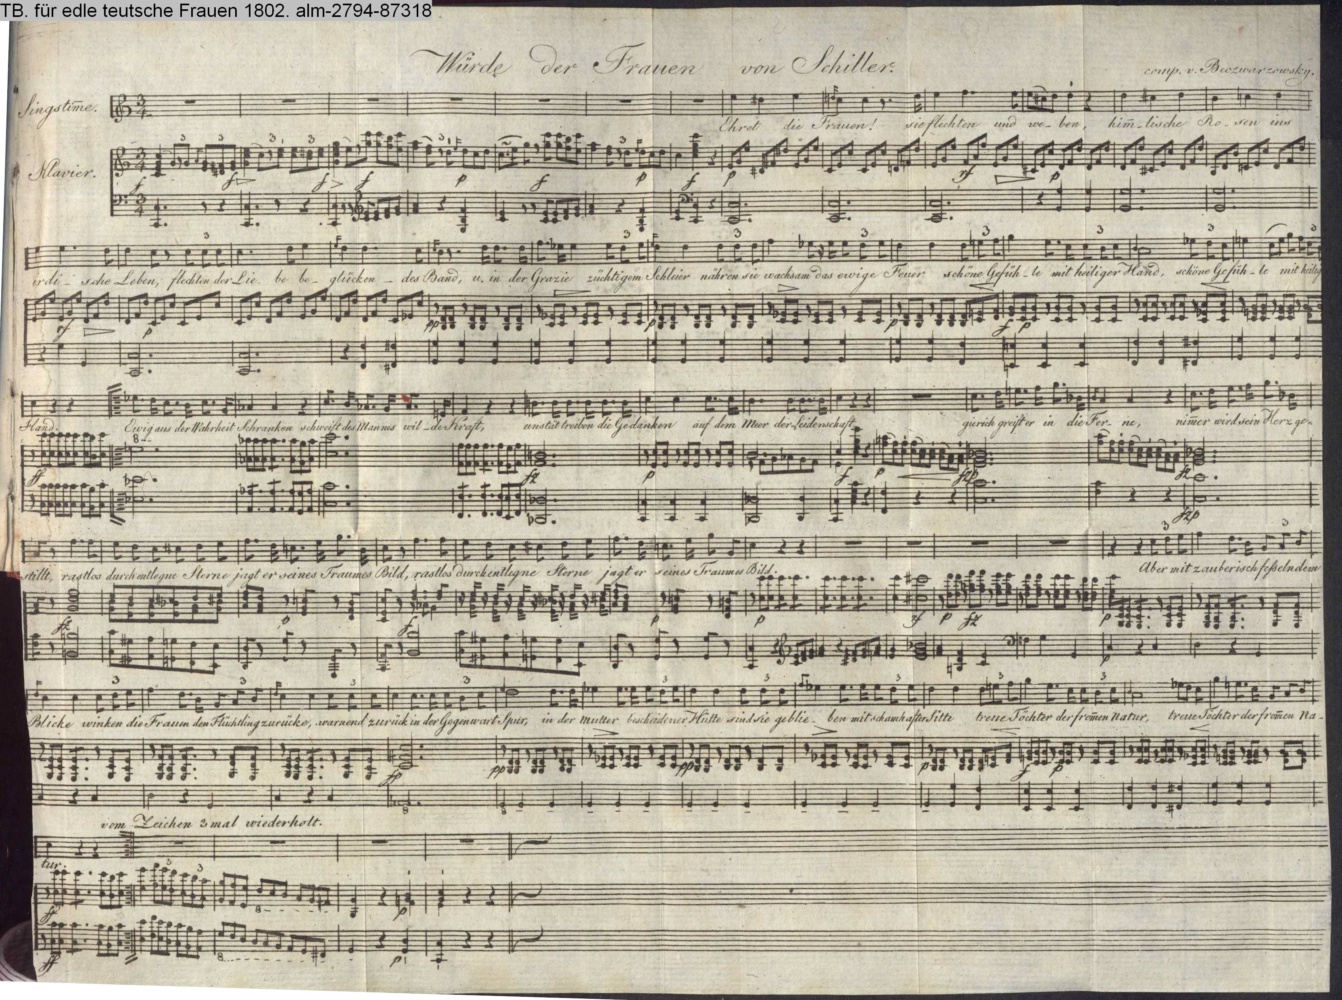 TB. für edle teutsche Frauen 1802. alm-2794-87318
Würde der Frauen von Schiller.
comp. v. Beczwarzowsky.
Singstim̅e.
Ehret die Frauen! sie flechten und we_ben, him̅_lische Ro_sen ins
Klavier.
f f f f p f p f p rf p
irdi_sche Leben, flechten der Lie_be be_glücken_des Band, u. in der Grazie züchtigem Schleier nähren sie wachsam das ewige Feuer schöner Gefüh_le mit heiliger Hand, schöner Gefüh_le mit heilig
rf p pp p p f p
Hand. Ewig aus der Wahrheit Schranken schweift des Mannes wil_de Kraft, unstät treiben die Gedanken auf dem Meer der Leidenschaft, gierich greift er in die Fer_ne, nim̅er wird sein Herz ge_
ff fz p f p fzp fz
fzp
stillt, rastlos durch entlegne Sterne jagt er seines Traumes Bild, rastlos durch entlegne Sterne jagt er seines Traumes Bild. Aber mit zauberisch feßelndem
fz p f p p rf p fz p
p
Blicke winken die Fraun den Flüchtling zurücke, warnend zurück in der Gegenwart Spur, in der Mutter bescheidener Hütte sind sie geblie_ben mit schamhafter Sitte treue Töchter der from̅en Natur, treue Töchter der from̅en Na_
fp pp pp p f p
vom Zeichen 3 mal wiederholt.
tur.
ff p
ff p